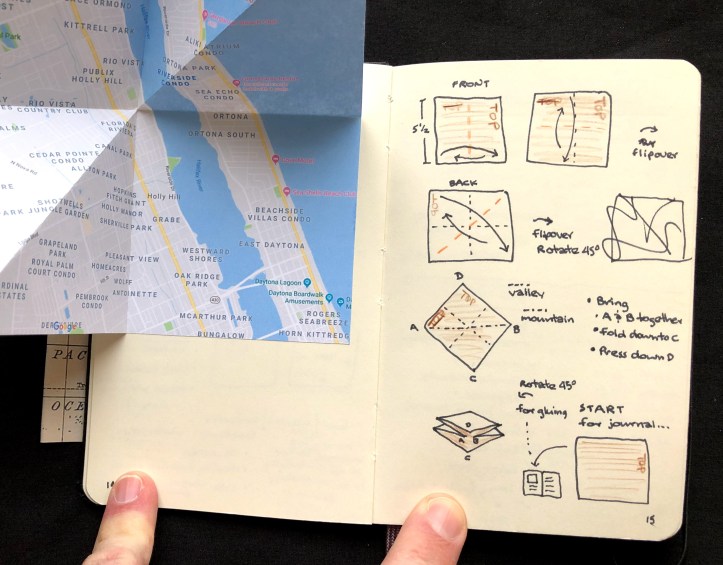 ACE ORMOND
KITTRELL PARK
RIO VISTA
PUBLIX
HOLLY HILL
RIO VISTA
COUNTRY CLUB
ALMS
CEDAR POINTE
CONDO
CANAL PARK
ALLYON PARK
HOPKINS
FITCH GRANT
HOLLY MANOR
SHERVILLE PARK
SHOTWELLS
JUNGLE GARDEN
Holly Hill
GRABE
GRAPELAND
PARK
ROYAL PALM
COURT CONDO
PLEASANT VIEW
HOMEACRES
WOLFF
ANTOINETTE
PEMBROOK
CONDO
CARDINAL
ESTATES
Google
ALIKI ATRIUM
CONDO
ORTONA PARK
RIVERSIDE
CONDO
SEA ECHO
CONDO
ORTONA
ORTONA SOUTH
BEACHSIDE
VILLAS CONDO
EAST DAYTONA
WESTWARD
SHORES
OAK RIDGE
PARK
Daytona Lagoon
Daytona Boardwalk
Amusements
430
MCARTHUR PARK
ROGERS
SEABREEZE
BUNGALOW
HORN KITTREDG
PAC
OCE
FRONT
5½
TOP
TOP
flipover
BACK
TOP
flipover
Rotate 45°
D
TOP
A
B
C
valley
mountain
• Bring
• A & B together
• Fold down to C
• Press down D
Rotate 45°
for gluing
D
A
B
C
START
for journal...
TOP
15